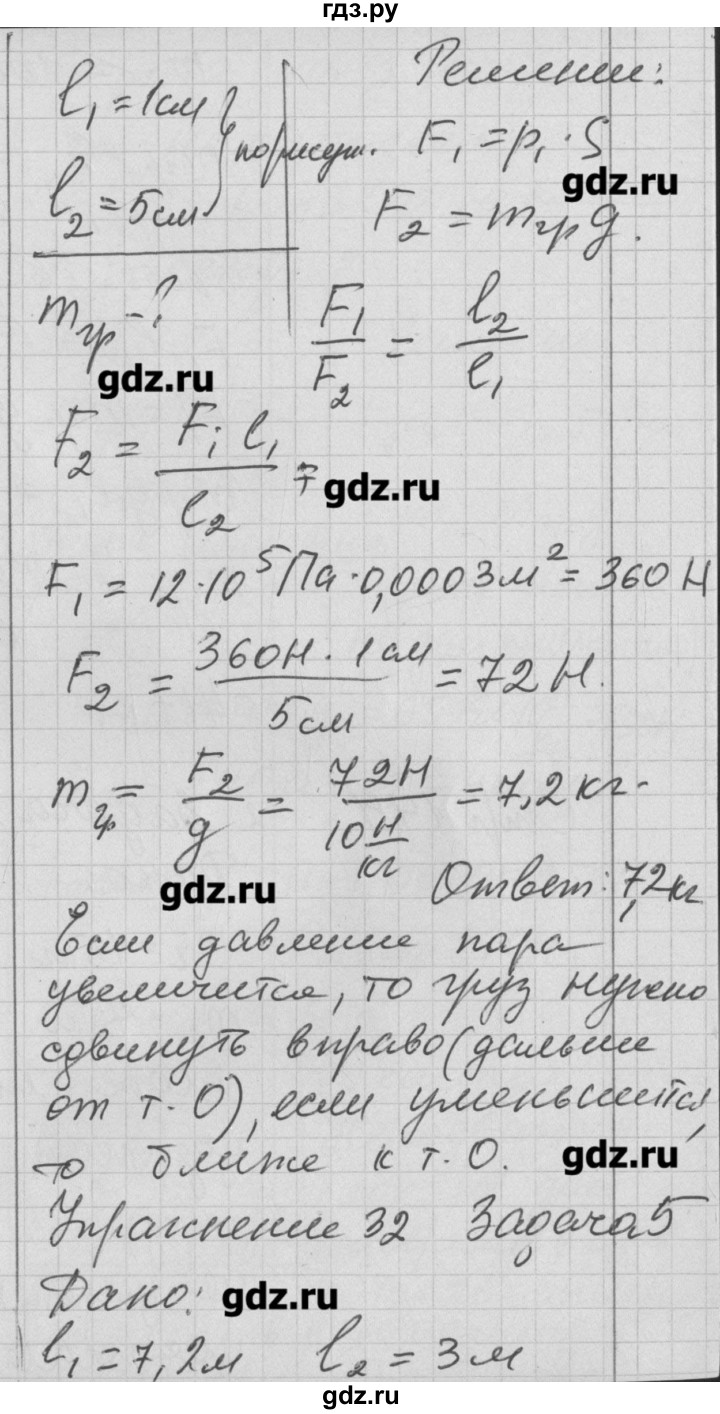 гдз.ру
l₁ = 1см } по рисун.
l₂ = 5см
m гр - ?
Решение:
F₁ = p₁ · S
gdz.ru
F₂ = m гр g.
F₁/F₂ = l₂/l₁
gdz.ru
F₂ = F₁ l₁ / l₂ ⇒
gdz.ru
F₁ = 12 · 10⁵ Па · 0,0003 м² = 360 Н
F₂ = 360Н · 1 см / 5 см = 72 Н.
m гр = F₂/g = 72Н / 10 Н/кг = 7,2 кг.
gdz.ru
Ответ: 7,2 кг
Если давление пара
увеличится, то груз нужно
сдвинуть вправо (дальше
от т. О), если уменьшится,
то ближе к т. О.
gdz.ru
Упражнение 32 Задача 5
Дано:
gdz.ru
l₁ = 7,2 м l₂ = 3 м
gdz.ru